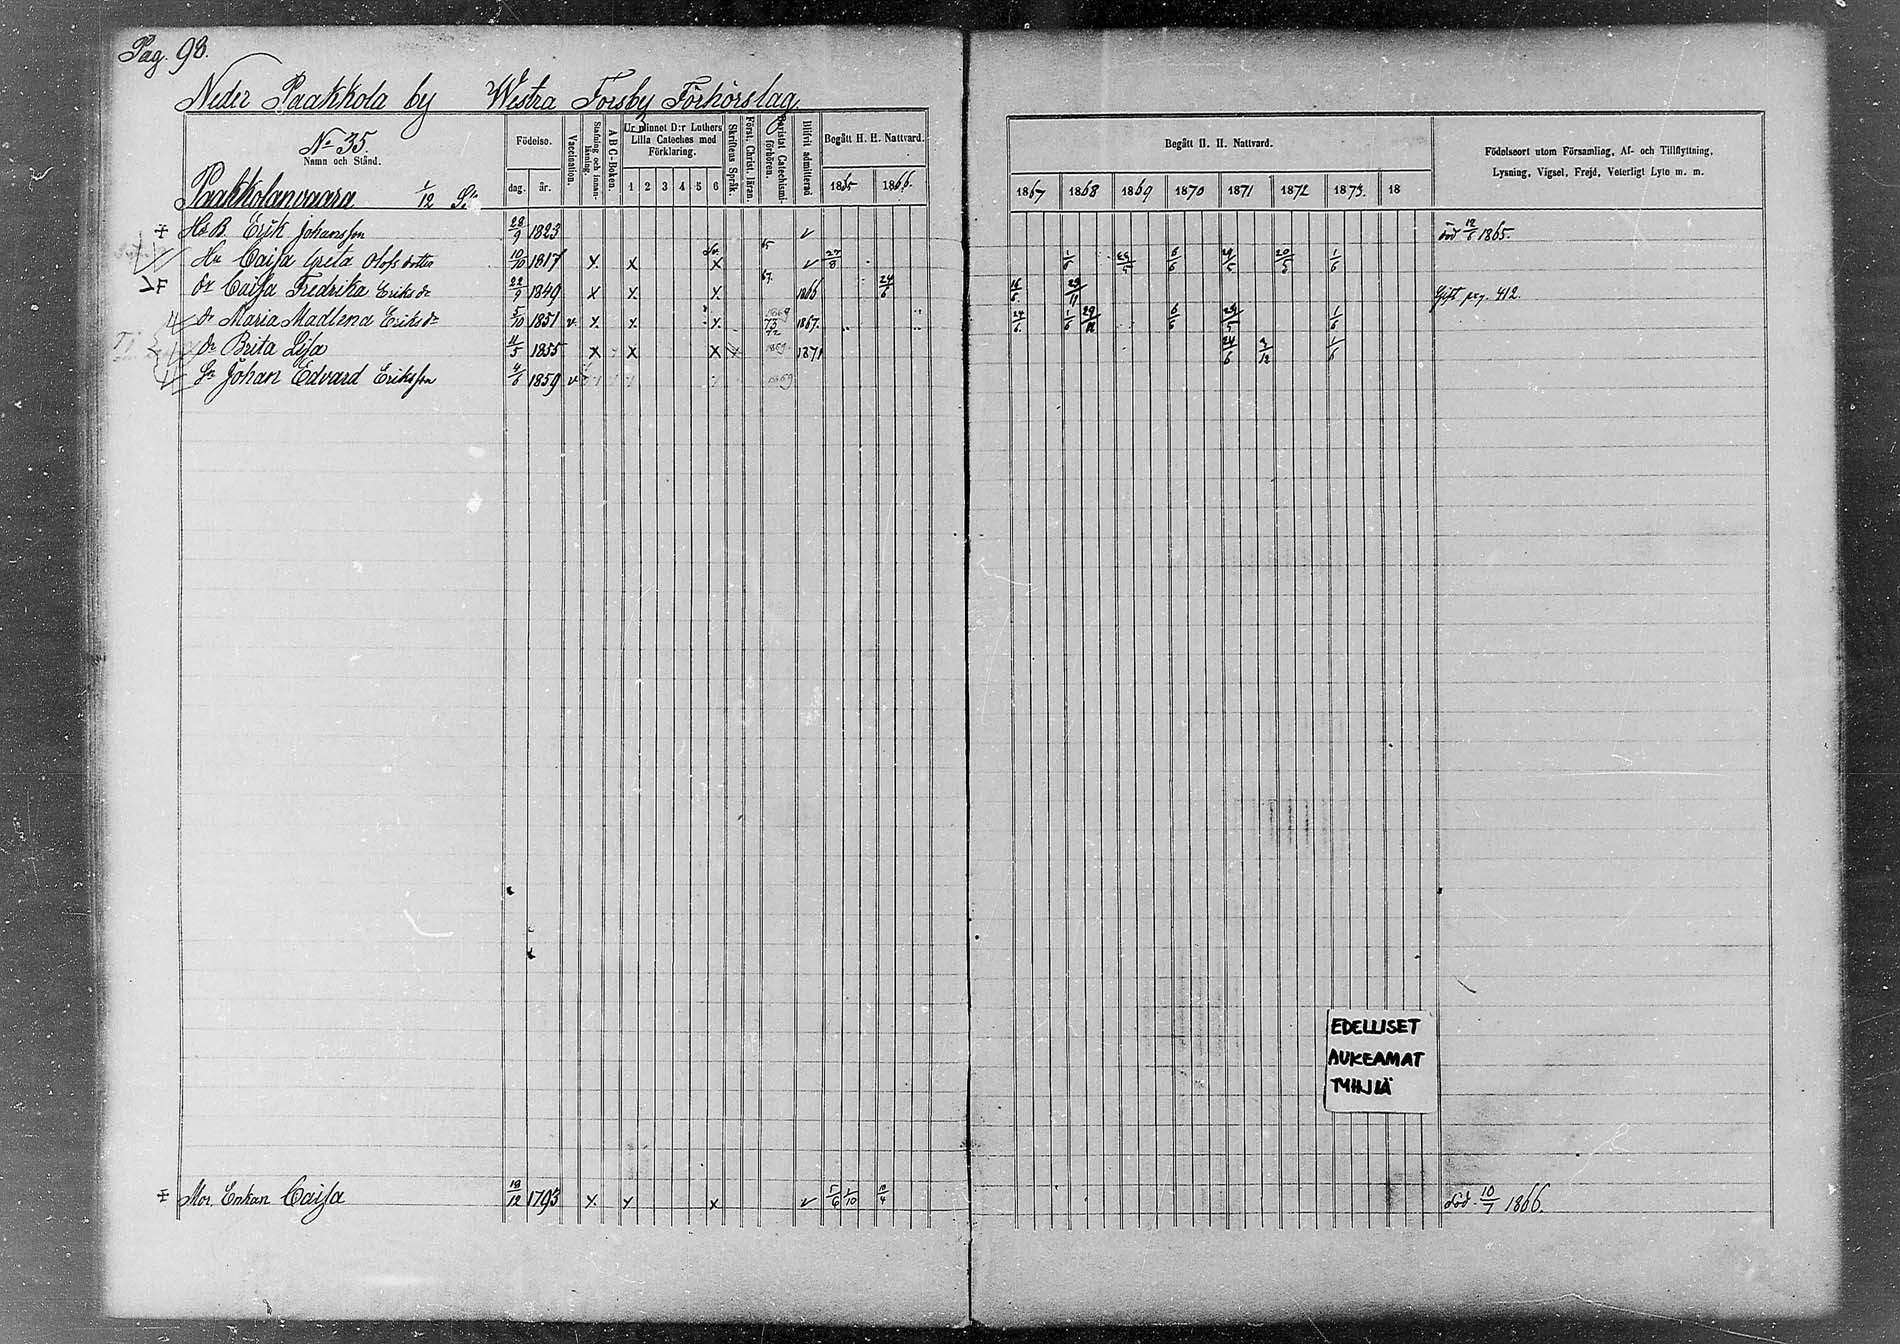 Pag. 98.
Neder Paakkola by Westra Forsby Förhörslag
No 35.
Namn och Stånd.
Födelse.
dag. år.
Vaccination.
Stafning och Innanläsning.
ABC-Boken.
Ur minnet D:r Luthers Lilla Cateches med Förklaring.
1 2 3 4 5 6
Skriftens Språk.
Först. Christ. läran.
Bevistat Catechismi förhören.
Blifvit admitterad
Begått H. H. Nattvard.
1865 1866.
Begått H. H. Nattvard.
1867 1868 1869 1870 1871 1872 1873. 18
Födelseort utom Församling, Af- och Tillflyttning,
Lysning, Vigsel, Frejd, Veterligt Lyte m. m.
Paakkolanvaara 1/12
Hb B. Erik Johansson 28/9 1823 död 12/6 1865.
Hu Caisa Greta Olofsdotter 10/10 1817 x x x 65 27/8 1/6 6/6 29/5 20/5 1/6
dr Caisa Fredrika Eriksdr 22/9 1849 x x x 67. 1866 24/6 16/6 29/11 Gift pag. 412.
dr Maria Madlena Eriksdr 5/10 1851 v. x x x 1869 73 72 1867. 24/6 1/6 29/11 6/6 29/5 1/6
dr Brita Lisa 11/5 1855 x x x 1869 1871 24/6 3/12 1/6
Sn Johan Edvard Eriksson 4/6 1859 v 1869
EDELLISET
AUKEAMAT
TYHJIÄ
Mor. Enkan Caisa 18/12 1793 x x x 1/10 död 10/7 1866.